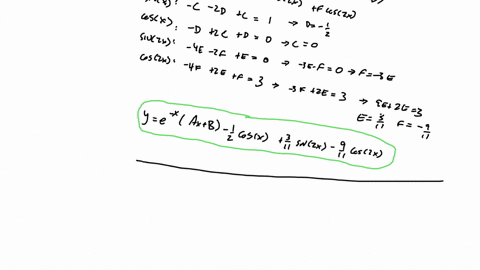 +F cos(2x)
-C -2D +C = 1 → D=-1/2
cos(x): -D +2C +D = 0 → C=0
sin(2x): -4E -2F +E = 0 → -3E-F=0 → F=-3E
cos(2x): -4F +2E +F = 3 → -3F+2E=3 → 9E+2E=3
E=3/11 F=-9/11
y=e^-x(Ax+B)-1/2 cos(x) +3/11 sin(2x)-9/11 cos(2x)